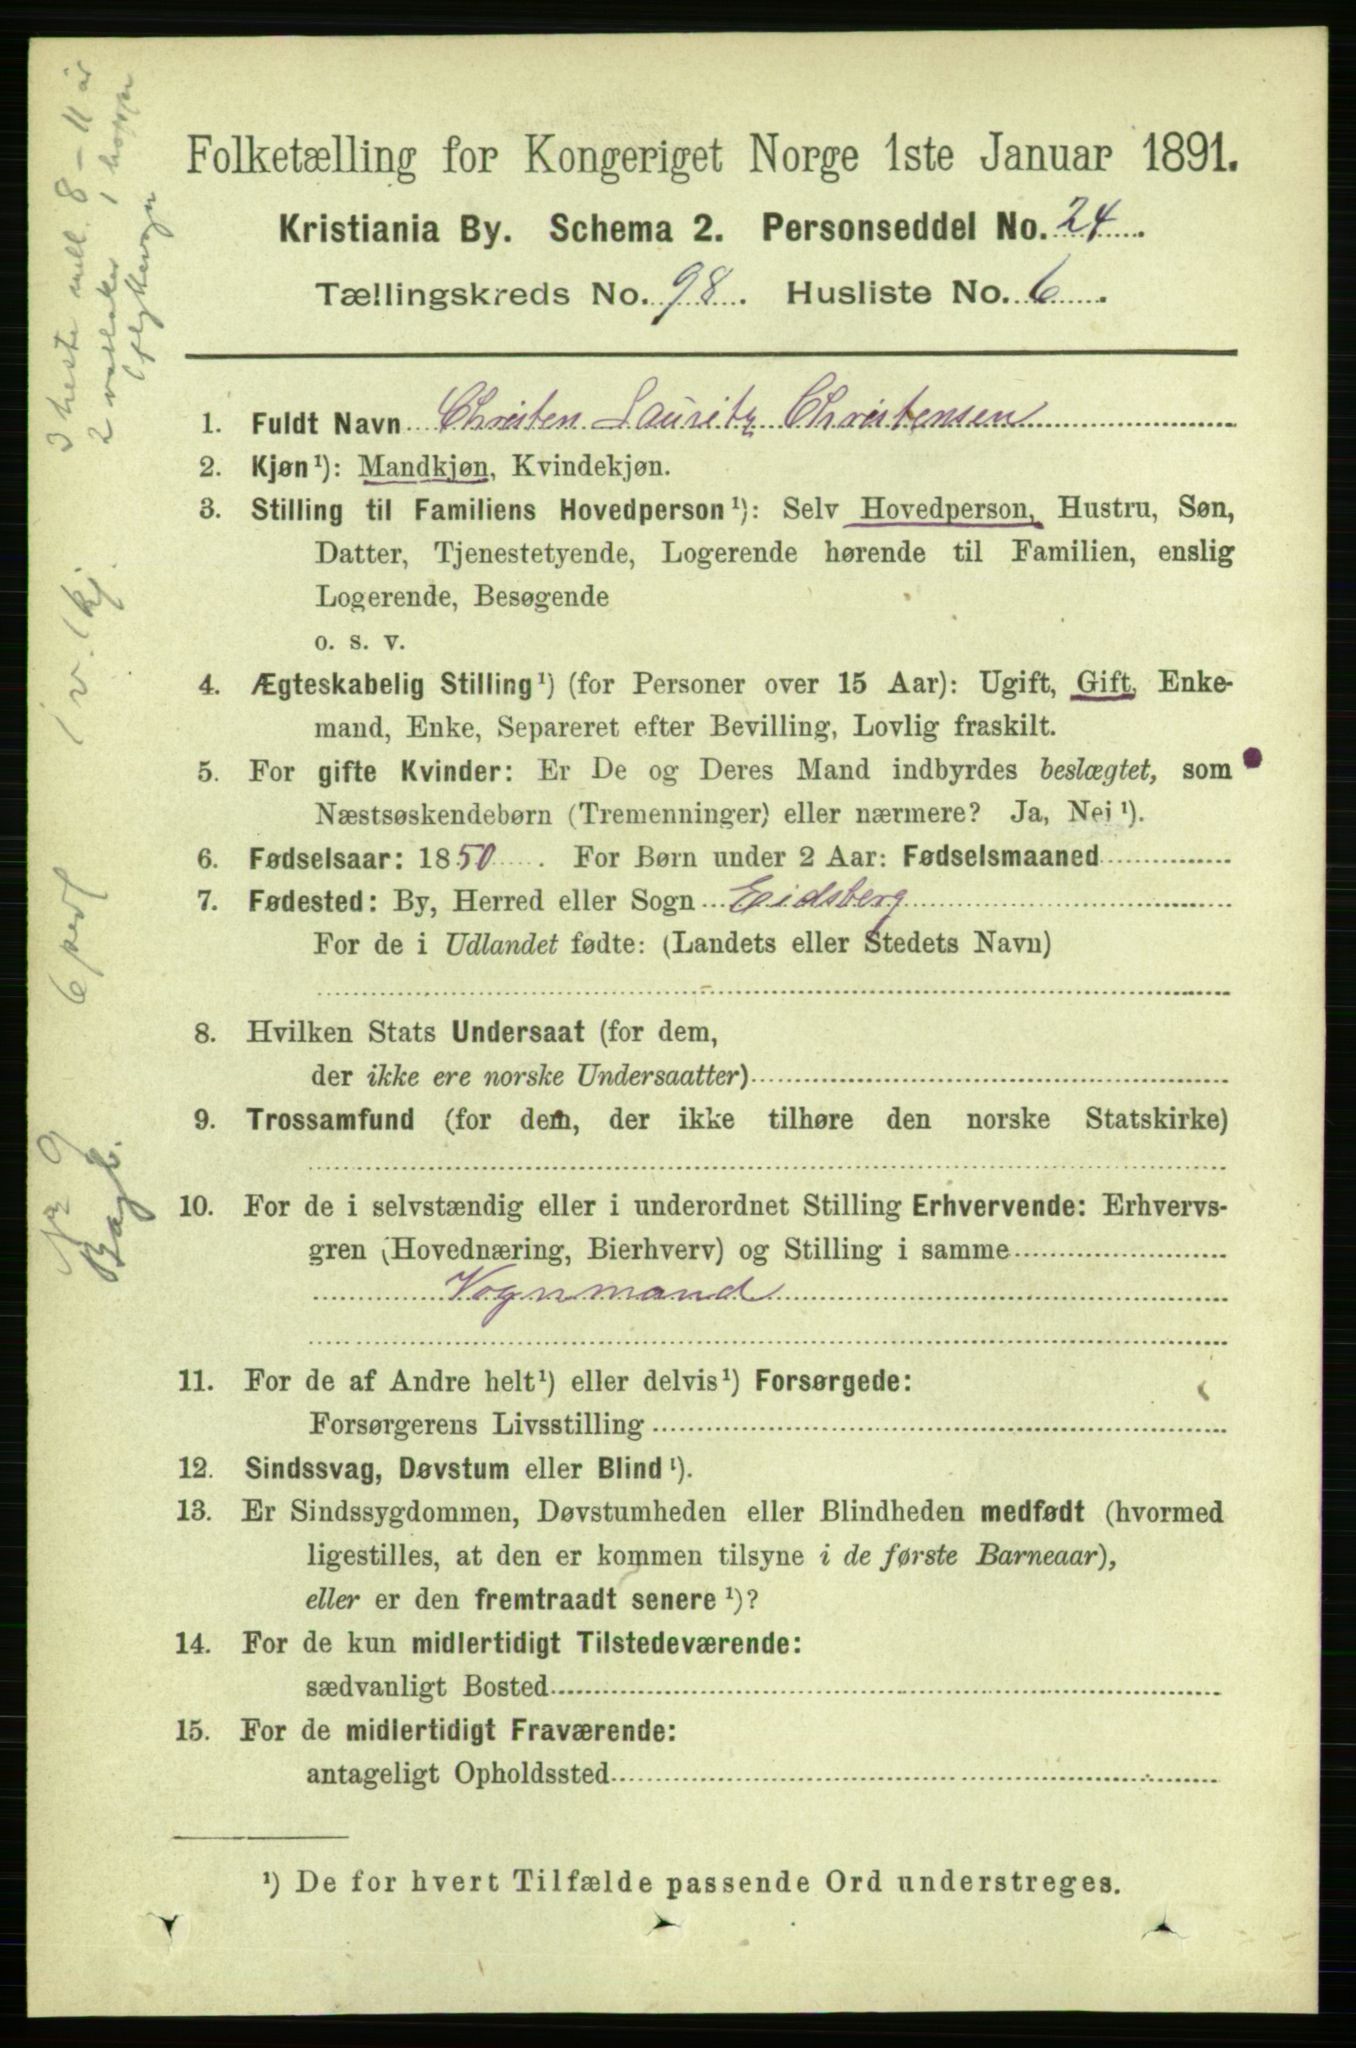 Folketælling for Kongeriget Norge 1ste Januar 1891.
Kristiania By. Schema 2. Personseddel No. 24.
Tællingskreds No. 98. Husliste No. 6.
1. Fuldt Navn Christen Lauritz Christensen
2. Kjøn¹): Mandkjøn, Kvindekjøn.
3. Stilling til Familiens Hovedperson¹): Selv Hovedperson, Hustru, Søn,
Datter, Tjenestetyende, Logerende hørende til Familien, enslig
Logerende, Besøgende
o. s. v.
4. Ægteskabelig Stilling¹) (for Personer over 15 Aar): Ugift, Gift, Enke-
mand, Enke, Separeret efter Bevilling, Lovlig fraskilt.
5. For gifte Kvinder: Er De og Deres Mand indbyrdes beslægtet, som
Næstsøskendebørn (Tremenninger) eller nærmere? Ja, Nei¹).
6. Fødselsaar: 1850. For Børn under 2 Aar: Fødselsmaaned
7. Fødested: By, Herred eller Sogn Eidsberg
For de i Udlandet fødte: (Landets eller Stedets Navn)
8. Hvilken Stats Undersaat (for dem,
der ikke ere norske Undersaatter)
9. Trossamfund (for dem, der ikke tilhøre den norske Statskirke)
10. For de i selvstændig eller i underordnet Stilling Erhvervende: Erhvervs-
gren (Hovednæring, Bierhverv) og Stilling i samme
Vognmand
11. For de af Andre helt¹) eller delvis¹) Forsørgede:
Forsørgerens Livsstilling
12. Sindssvag, Døvstum eller Blind¹).
13. Er Sindssygdommen, Døvstumheden eller Blindheden medfødt (hvormed
ligestilles, at den er kommen tilsyne i de første Barneaar),
eller er den fremtraadt senere¹)?
14. For de kun midlertidigt Tilstedeværende:
sædvanligt Bosted
15. For de midlertidigt Fraværende:
antageligt Opholdssted
¹) De for hvert Tilfælde passende Ord understreges.
3 heste mell. 8-11 år
2 1 hoppe
1 v. 1 kj.
6
Bagb.